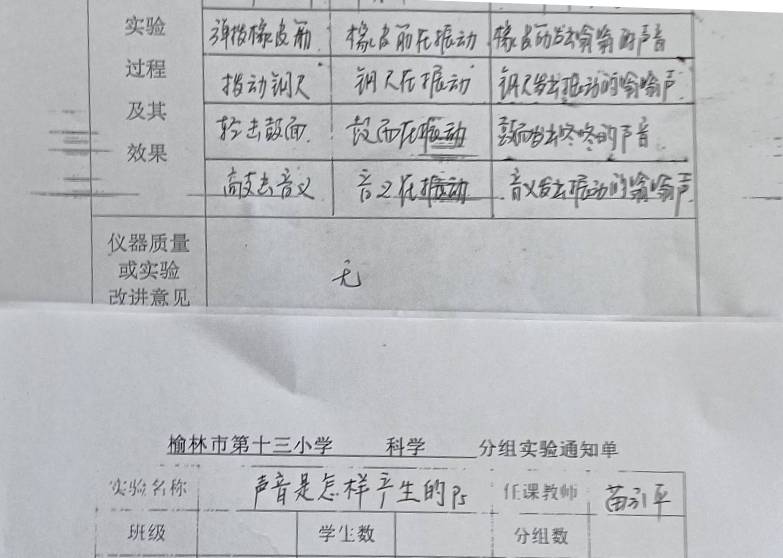 实验
过程
及其
效果
弹拨橡皮筋 橡皮筋在振动 橡皮筋发出嗡嗡的声音
拨动钢尺 钢尺在振动 钢尺发出振动的嗡嗡声
轻击鼓面 鼓面在振动 鼓面发出咚咚的声音
敲击音叉 音叉在振动 音叉发出振动的嗡嗡声
仪器质量
或实验
改进意见
无
榆林市第十三小学 科学 分组实验通知单
实验名称 声音是怎样产生的 P5 任课教师 苗引平
班级 学生数 分组数